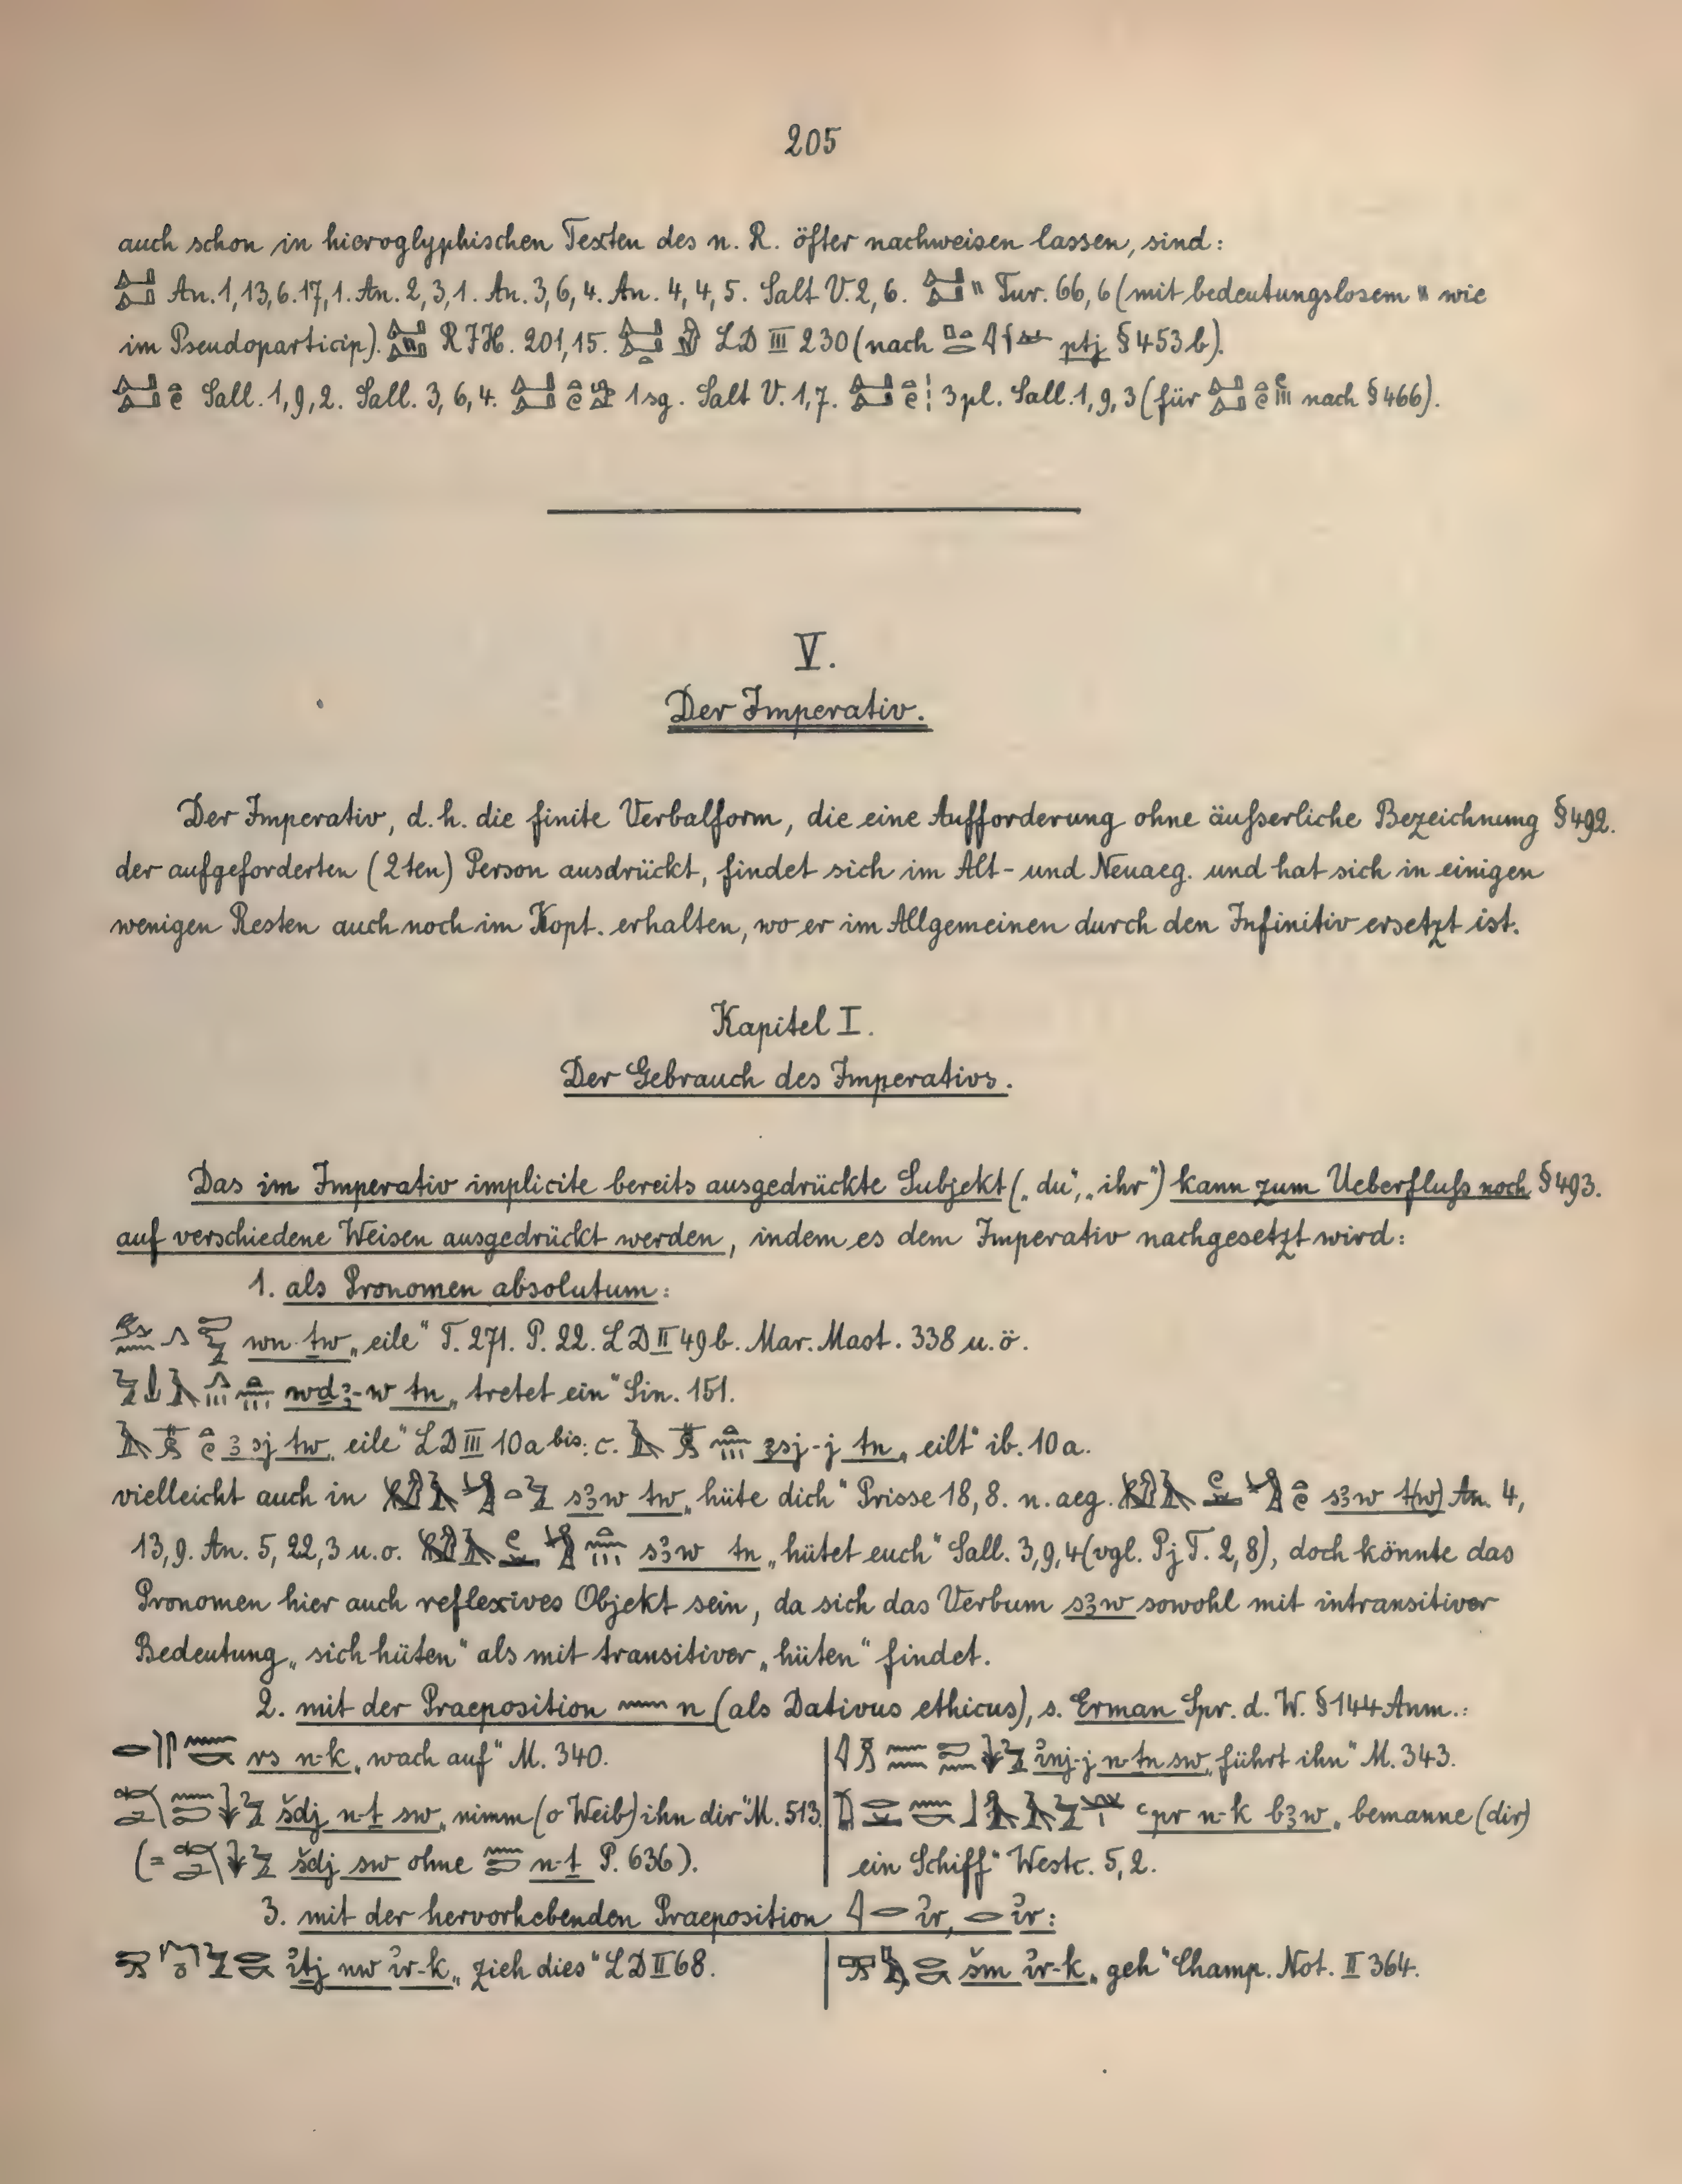 205
auch schon in hieroglyphischen Texten des n. R. öfter nachweisen lassen, sind:
An. 1, 13, 6. 17, 1. An. 2, 3, 1. An. 3, 6, 4. An. 4, 4, 5. Salt V. 2, 6. " Tur. 66, 6 (mit bedeutungslosem " wie
im Pseudoparticip). RJH. 201, 15. LD III 230 (nach ptj § 453 b).
Sall. 1, 9, 2. Sall. 3, 6, 4. 1 sg. Salt V. 1, 7. 3 pl. Sall. 1, 9, 3 (für nach § 466).
V.
Der Imperativ.
Der Imperativ, d. h. die finite Verbalform, die eine Aufforderung ohne äußerliche Bezeichnung § 492.
der aufgeforderten (2ten) Person ausdrückt, findet sich im Alt- und Neuaeg. und hat sich in einigen
wenigen Resten auch noch im Kopt. erhalten, wo er im Allgemeinen durch den Infinitiv ersetzt ist.
Kapitel I.
Der Gebrauch des Imperativs.
Das im Imperativ implicite bereits ausgedrückte Subjekt („du", „ihr") kann zum Ueberfluß noch § 493.
auf verschiedene Weisen ausgedrückt werden, indem es dem Imperativ nachgesetzt wird:
1. als Pronomen absolutum:
wn ṯw „eile" T. 271. P. 22. LD II 49 b. Mar. Mast. 338 u. ö.
wḏꜣ-w tn „tretet ein" Sin. 151.
ꜣsj tw „eile" LD III 10a bis. c. ꜣsj-j tn „eilt" ib. 10a.
vielleicht auch in sꜣw tw „hüte dich" Prisse 18, 8. n. aeg. sꜣw t(w) An. 4,
13, 9. An. 5, 22, 3 u. o. sꜣw tn „hütet euch" Sall. 3, 9, 4 (vgl. Pj T. 2, 8), doch könnte das
Pronomen hier auch reflexives Objekt sein, da sich das Verbum sꜣw sowohl mit intransitiver
Bedeutung „sich hüten" als mit transitiver „hüten" findet.
2. mit der Praeposition n (als Dativus ethicus), s. Erman Spr. d. W. § 144 Anm.:
rs n-k „wach auf" M. 340.
šdj n-ṯ sw „nimm (o Weib) ihn dir" M. 513
(= šdj sw ohne n-ṯ P. 636).
ỉnj-j n-ṯn sw „führt ihn" M. 343.
ꜥpr n-k bꜣw „bemanne (dir)
ein Schiff" Westc. 5, 2.
3. mit der hervorhebenden Praeposition ỉr, ỉr:
ỉṯj nw ỉr-k „zieh dies" LD II 68.
šm ỉr-k „geh" Champ. Not. II 364.